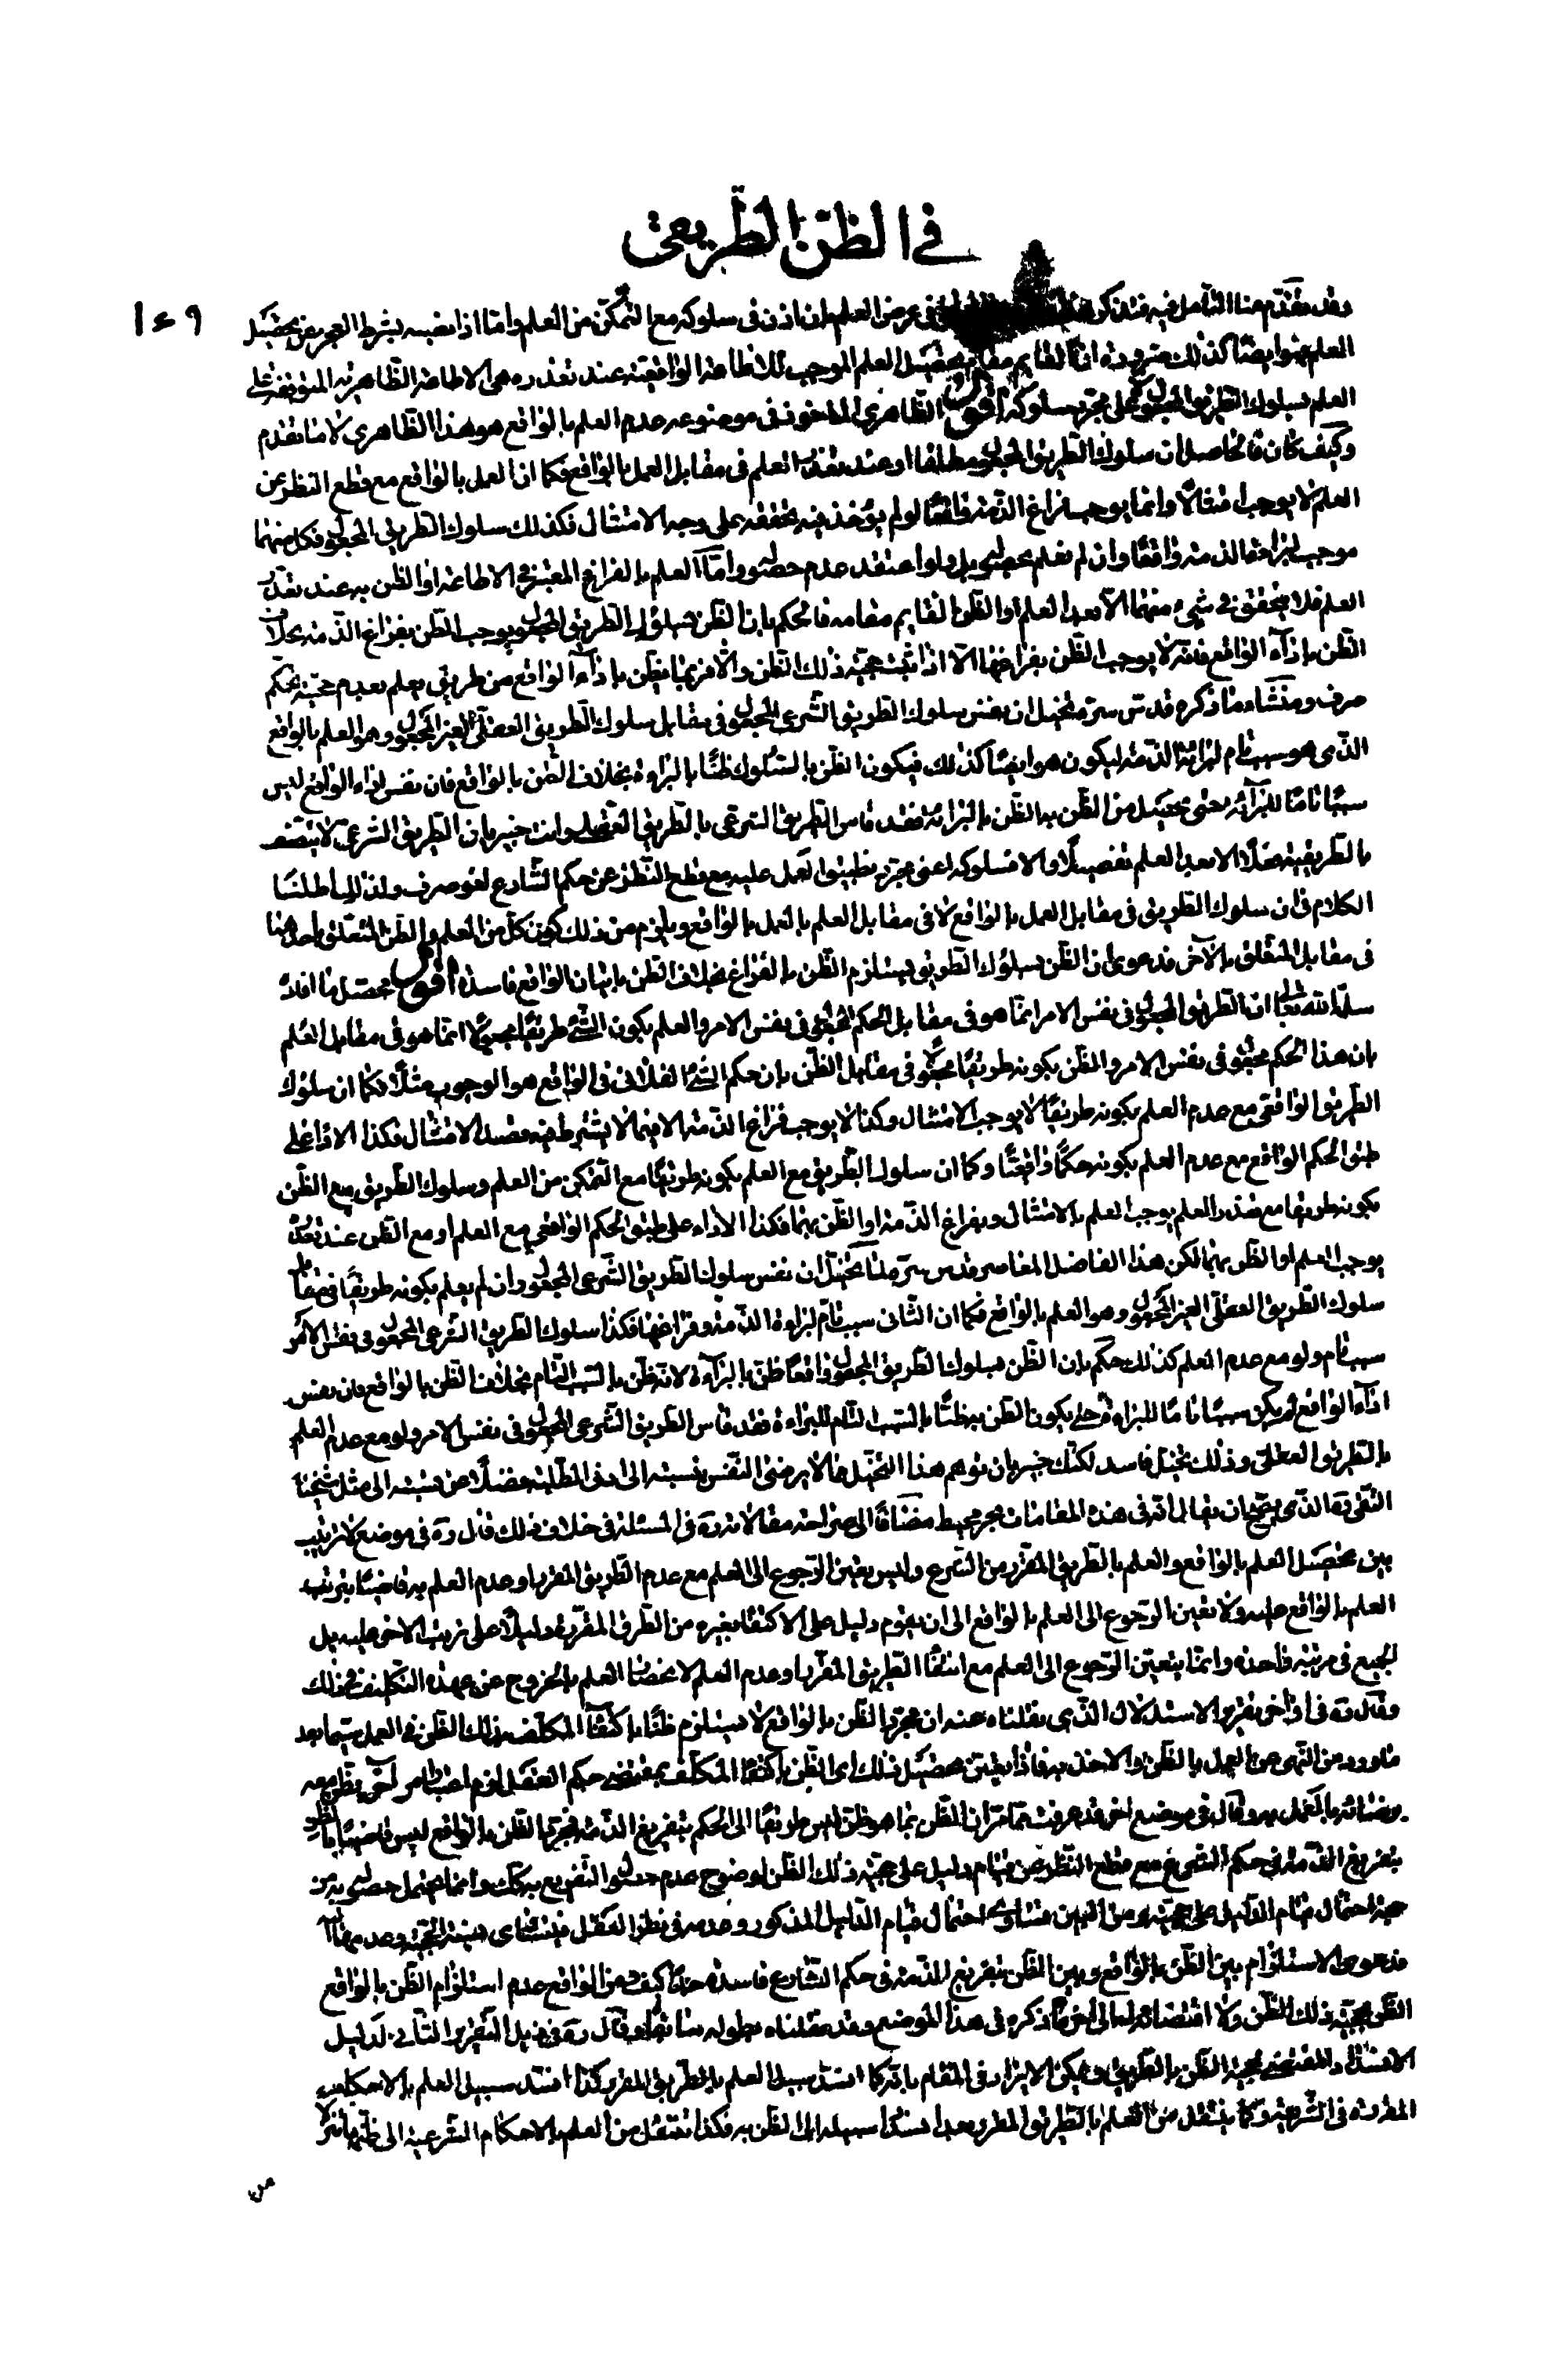 في الظن الطريقى
١٤٩
وقد تقدم منا التأمل فيه فتذكر في عرض العلم بان اذن فى سلوكه مع التمكن من العلم وامّا اذا نصبه بشرط العجز عن تحصيل
العلم فهو ايضا كذلك ضرورة ان القايم مقام تحصيل العلم الموجب للاطاعة الواقعية عند تعذره هى الاطاعة الظاهرية المتوقفة على
العلم بسلوك الطريق المجعول لا على مجرد سلوكه اقول الظاهرى الماخوذ فى موضوعه عدم العلم بالواقع هو هذا الظاهرى لا ما تقدم
وكيف كان فالحاصل ان سلوك الطريق المجعول مطلقا او عند تعذر العلم فى مقابل العمل بالواقع فكما ان العمل بالواقع مع قطع النظر عن
العلم لا يوجب امتثالا وانما يوجب فراغ الذمة واقعا لو لم يؤخذ فيه تحققه على وجه الامتثال فكذلك سلوك الطريق المجعول فكل منهما
موجب لبراءة الذمة واقعا وان لم يعلم بحصوله بل ولو اعتقد عدم حصوله وامّا العلم بالفراغ المعتبر فى الاطاعة او الظن به عند تعذر
العلم فلا يتحقق فى شىء منهما الا بعد العلم او الظن القايم مقامه فالحكم بان الظن بسلوك الطريق المجعول يوجب الظن بفراغ الذمة بخلاف
الظن باداء الواقع فانه لا يوجب الظن بفراغها الا اذا ثبت حجية ذلك الظن والا فربما يظن باداء الواقع من طريق يعلم بعدم حجيته تحكم
صرف ومنشاء ما ذكره قدس سره تخيل ان نفس سلوك الطريق الشرعى المجعول فى مقابل سلوك الطريق العقلى الغير المجعول وهو العلم بالواقع
الذى هو سبب تام لبراءة الذمة ليكون هو ايضا كذلك فيكون الظن بالسلوك ظنا بالبراءة بخلاف الظن بالواقع فان نفس اداء الواقع ليس
سببا تاما للبراءة حتى يحصل من الظن به الظن بالبراءة فقد قاس الطريق الشرعى بالطريق العقلى وانت خبير بان الطريق الشرعى لا يتصف
بالطريقية فعلا الا بعد العلم تفصيلا والا فسلوكه اعنى مجرد تطبيق العمل عليه مع قطع النظر عن حكم الشارع لغو صرف ولذلك اطلنا
الكلام فى ان سلوك الطريق فى مقابل العمل بالواقع لا فى مقابل العلم بالعمل بالواقع ويلزم من ذلك كون كل من العلم والظن المتعلق باحدهما
فى مقابل المتعلق بالآخر فدعوى ان الظن بسلوك الطريق يستلزم الظن بالفراغ بخلاف الظن باتيان الواقع فاسدة اقول محصل ما افاده
سلمه الله تعالى ان الطريق المجعول فى نفس الامر انما هو فى مقابل الحكم المجعول فى نفس الامر والعلم بكون الشئ طريقا مجعولا انما هو فى مقابل العلم
بان هذا الحكم مجعول فى نفس الامر والظن بكونه طريقا مجعولا فى مقابل الظن بان حكم الشئ الفلانى فى الواقع هو الوجوب مثلا فكما ان سلوك
الطريق الواقعى مع عدم العلم بكونه طريقا لا يوجب الامتثال وكذا لا يوجب فراغ الذمة الا فيما لا يشترط فيه قصد الامتثال فكذا الاداء على
طبق الحكم الواقع مع عدم العلم بكونه حكما واقعيا وكما ان سلوك الطريق مع العلم بكونه طريقا مع التمكن من العلم وسلوك الطريق مع الظن
بكونه طريقا مع تعذر العلم يوجب العلم بالامتثال وبفراغ الذمة او الظن بهما فكذا الاداء على طبق الحكم الواقعى مع العلم او مع الظن عند تعذره
يوجب العلم او الظن بهما لكن هذا الفاضل المعاصر قدس سره لما تخيل ان نفس سلوك الطريق الشرعى المجعول وان لم يعلم بكونه طريقا فى مقابل
سلوك الطريق العقلى الغير المجعول وهو العلم بالواقع فكما ان الثانى سبب تام لبراءة الذمة وفراغها فكذا سلوك الطريق الشرعى المجعول فى نفس الامر
سبب تام ولو مع عدم العلم كذلك حكم بان الظن بسلوك الطريق المجعول واقعا ظن بالبراءة لانه ظن بالسبب التام بخلاف الظن بالواقع فان نفس
اداء الواقع لم يكن سببا تاما للبراءة حتى يكون الظن به ظنا بالسبب التام للبراءة فقد قاس الطريق الشرعى المجعول فى نفس الامر ولو مع عدم العلم
بالطريق العقلى وذلك تخيل فاسد لكنك خبير بان توهم هذا التخيل مما لا يرضى النفس بنسبته الى ادنى الطلبة فضلا عن نسبته الى مثل شيخنا
التقى ره الذى يصح ان يقال انه فى هذه المقامات بحر محيط مضافا الى صراحة مقالاته ره فى المسئلة فى خلاف ذلك قال ره فى موضع لا ترتيب
بين تحصيل العلم بالواقع والعلم بالطريق المقرر من الشرع وليس تعين الرجوع الى العلم مع عدم الطريق المقرر او عدم العلم به قاضيا بترتب
العلم بالواقع عليه ولا تعين الرجوع الى العلم بالواقع الى ان يقوم دليل على الاكتفاء بغيره من الطرق المقررة دليلا على ترتب الاخر عليه بل
الجميع فى مرتبة واحدة وانما يتعين الرجوع الى العلم مع انتفاء الطريق المقرر او عدم العلم لانحصار العلم بالخروج عن عهدة التكليف فى ذلك
وقال ره فى اواخر تقرير الاستدلال الذى نقلناه عنه ان مجرد الظن بالواقع لا يستلزم ظنا باكتفاء المكلف بذلك الظن فى العمل سيما بعد
ما ورد من النهى عن العمل بالظن والاخذ به فاذا تعين تحصيل ذلك اى الظن باكتفاء المكلف بمقتضى حكم العقل لزم اعتبار امر آخر يظن معه
برضائه بالعمل به وقال فى موضع آخر قد عرفت مما مر ان الظن بما هو ظن ليس طريقا الى الحكم بتفريغ الذمة فمجرد الظن بالواقع ليس قاضيا بالظن
بتفريغ الذمة فى حكم الشرع مع قطع النظر عن قيام دليل على حجية ذلك الظن لوضوح عدم حصول التفريغ به كك وانما يحتمل حصوله به من
جهة احتمال قيام الدليل على حجيته ومن البين تساوى احتمال قيام الدليل المذكور وعدمه فى نظر العقل فيتساوى نسبة الحجية وعدمها اليه
فدعوى الاستلزام بين الظن بالواقع وبين الظن بتفريغ الذمة فى حكم الشارع فاسدة جدا كيف ومن الواقع عدم استلزام الظن بالواقع
الظن بحجية ذلك الظن ولا اقتضاء له الى آخر ما ذكره فى هذا الموضع وقد نقلناه بطوله سابقا وقال ره فى ذيل التقرير الثانى لدليل
الانسداد المقتضى لحجية الظن بالطريق ويمكن الايراد فى المقام بانه كما انسد سبيل العلم بالطريق المقرر كذا انسد سبيل العلم بالاحكام
المقررة فى الشريعة وكما ينتقل من العلم بالطريق المقرر بعد انسداد سبيله الى الظن به فكذا ينتقل من العلم بالاحكام الشرعية الى ظنها